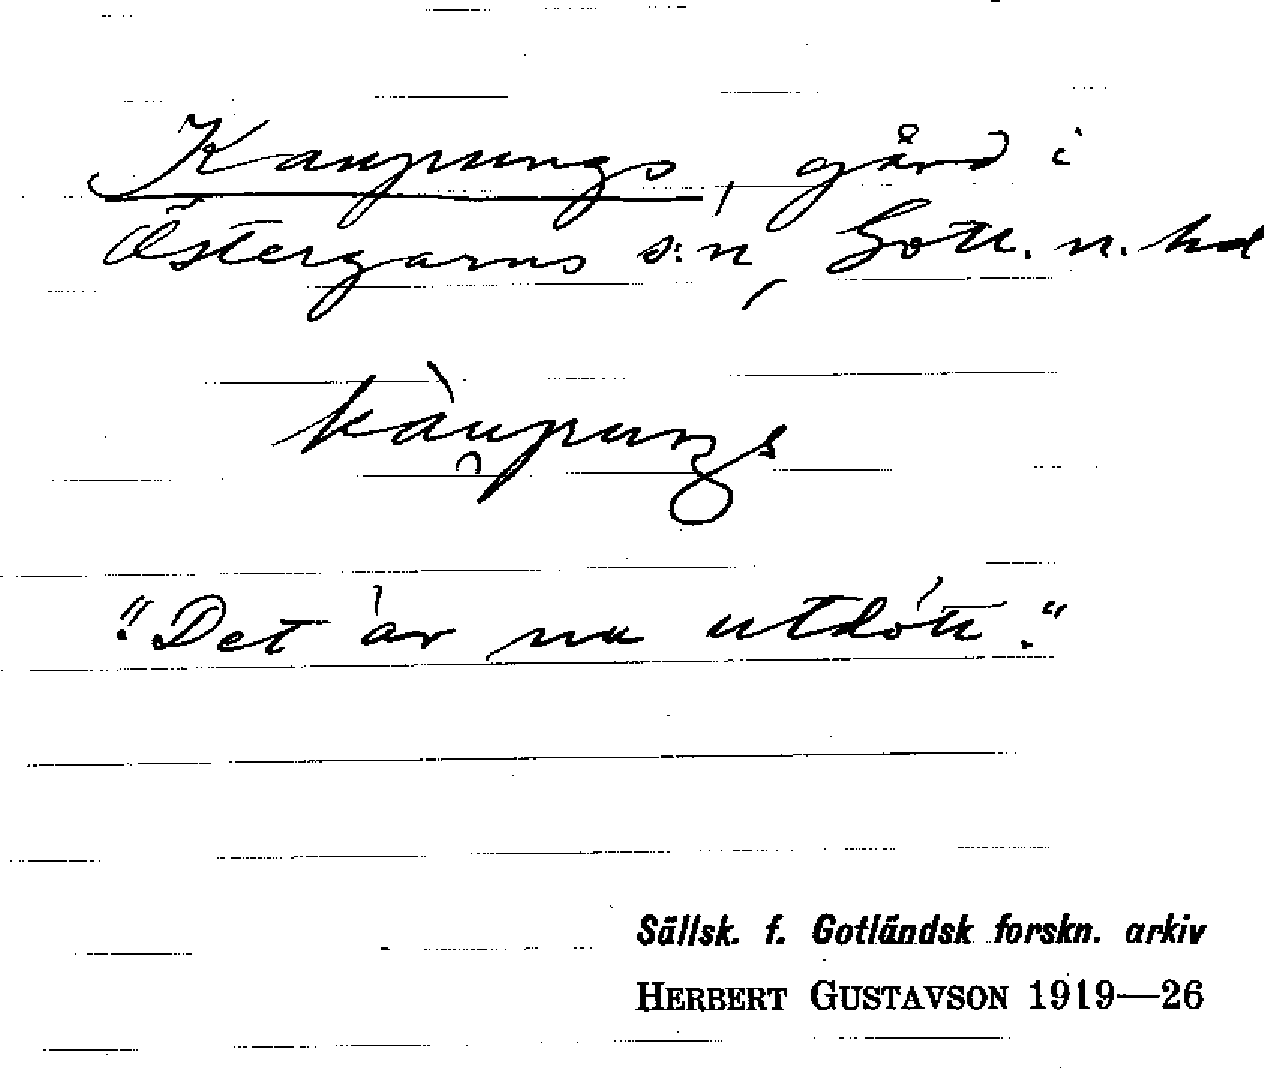 Kaupungs, gård i
Östergarns s:n, Gotl. n. hd
kàu̯puŋs
"Det är nu utdött."
Sällsk. f. Gotländsk forskn. arkiv
HERBERT GUSTAVSON 1919—26